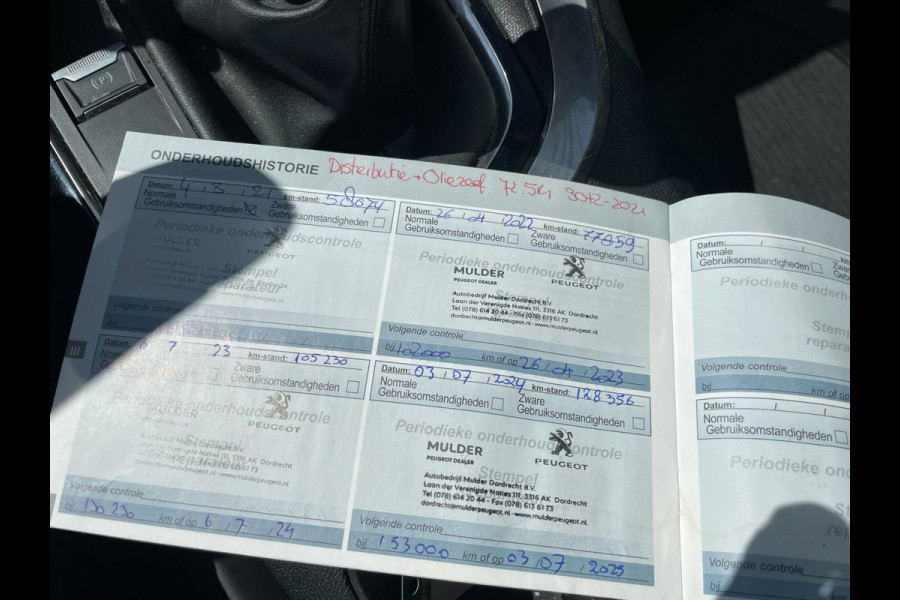 (P)
ONDERHOUDSHISTORIE Distributie + Oliezeef 72.5K 30-12-2021
Datum: 4 / 3 / 21 km-stand: 58674
Normale Gebruiksomstandigheden
Zware Gebruiksomstandigheden
Periodieke onderhoudscontrole
MULDER
PEUGEOT
Stempel
Volgende controle
bij
Datum: 26 / 04 / 2022 km-stand: 77859
Normale Gebruiksomstandigheden
Zware Gebruiksomstandigheden
Periodieke onderhoudscontrole
MULDER
PEUGEOT DEALER
PEUGEOT
Stempel
Autobedrijf Mulder Dordrecht B.V.
Laan der Verenigde Naties 111, 3316 AK Dordrecht
Tel (078) 614 20 44 - Fax (078) 613 61 73
dordrecht@mulderpeugeot.nl - www.mulderpeugeot.nl
Volgende controle
bij 102000 km of op 26 / 04 / 2023
III
6 7 23 km-stand: 105230
Zware Gebruiksomstandigheden
Periodieke onderhoudscontrole
PEUGEOT
Stempel
Volgende controle
bij 130 230 km of op 6 / 7 / 24
Datum: 03 / 07 / 2024 km-stand: 128356
Normale Gebruiksomstandigheden
Zware Gebruiksomstandigheden
Periodieke onderhoudscontrole
MULDER
PEUGEOT DEALER
PEUGEOT
Stempel
Autobedrijf Mulder Dordrecht B.V.
Laan der Verenigde Naties 111, 3316 AK Dordrecht
Tel (078) 614 20 44 - Fax (078) 613 61 73
dordrecht@mulderpeugeot.nl - www.mulderpeugeot.nl
Volgende controle
bij 153000 km of op 03 / 07 / 2025
Datum: / /
Normale Gebruiksomstandigheden
Zwa
Periodieke onder
Stemp
repara
Volgende controle
bij km of op
Datum: / /
Normale Gebruiksomstandigheden
Zwa
Periodieke ond
Ste
rep
Volgende controle
bij km of